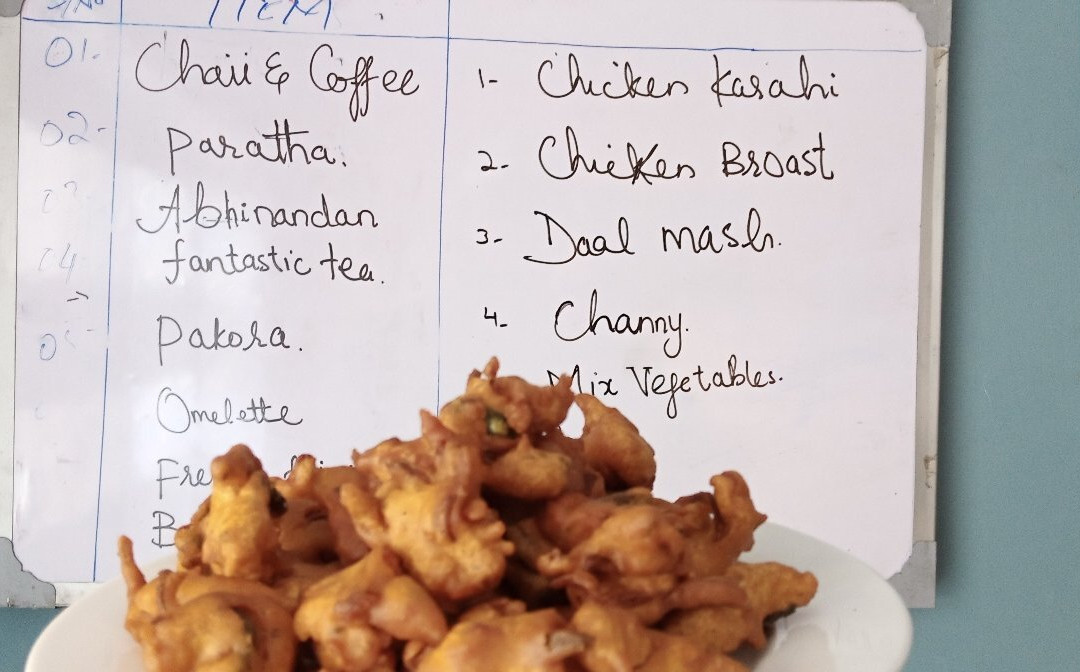 S/No ITEM.
01- Chaii & Coffee
02- Paratha.
Abhinandan
fantastic tea.
Pakora.
Omelette
1- Chicken Karahi
2- Chicken Broast
3- Daal mash.
4- Channy.
Mix Vegetables.